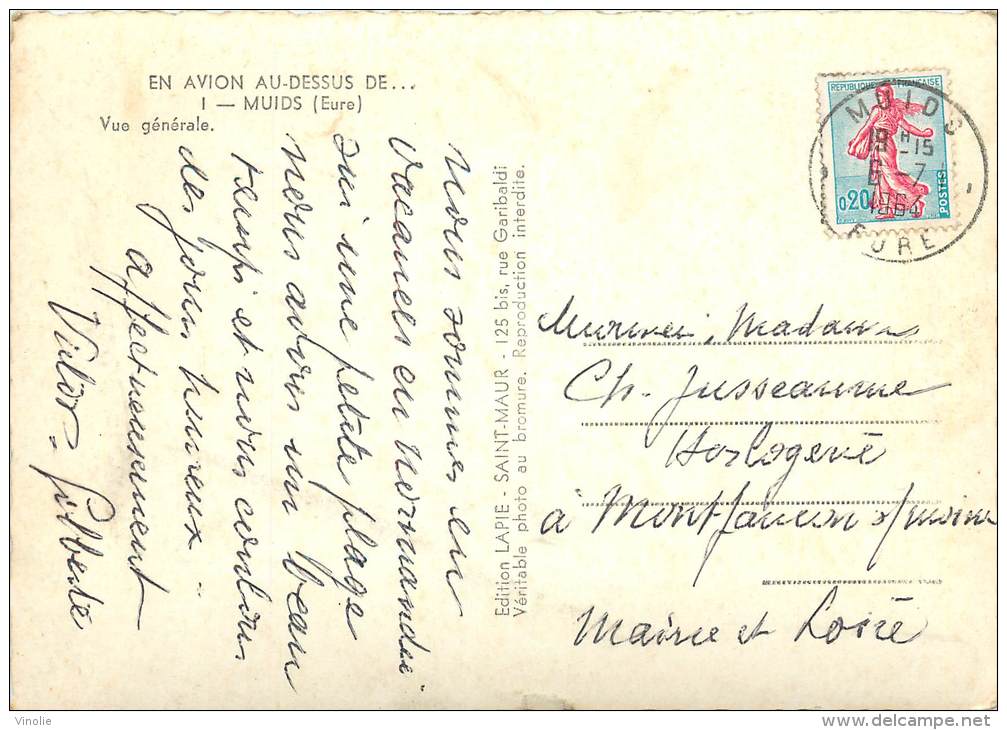 EN AVION AU-DESSUS DE...
I — MUIDS (Eure)
Vue générale.
Nous sommes en
Vacances en Normandie
sur une petite plage
nous avons un beau
temps et nous coulons
des jours heureux -
affectueusement
Victor - Gilberte
Edition LAPIE - SAINT-MAUR - 125 bis, rue Garibaldi
Véritable photo au bromure. Reproduction interdite.
REPUBLIQUE FRANÇAISE
0,20
POSTES
MUIDS
19 H -15
6 -7
1964
EURE
Monsieur, Madame
Ch. Jusseaume
Horlogerie
à Montfaucon s/moine
Maine et Loire
Vinolie
http://www.delcampe.net